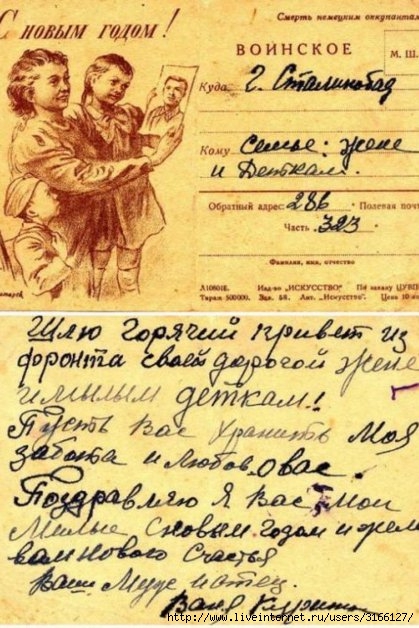 С новым годом!
Смерть немецким оккупантам
ВОИНСКОЕ
М. Ш.
Куда г. Сталинобад
Кому Семье: жене
и Деткам.
Обратный адрес: 286 · Полевая поч
Часть 323
Фамилия, имя, отчество
Л108018. Изд-во „ИСКУССТВО“ По заказу ЦУВП
Тираж 500000. Зак. 58. Лит. „Искусство“. Цена 10
Шлю горячий привет из
фронта своей дорогой жене
и милым деткам!
Пусть Вас хранить моя
забота и любов о вас.
Поздравляю я Вас мои
милые с новым годом и жел
вам нового счастья
Ваш Муж и отец.
Ваня
http://www.liveinternet.ru/users/3166127/